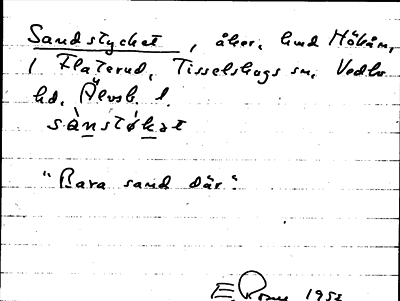 Sandstycket, åker, hmd Hökåsn,
1 Flaterud, Tisselskogs sn, Vedbo
hd, Älvsb. l.
sànstə́kət
"Bara sand där".
E Rosm 1952